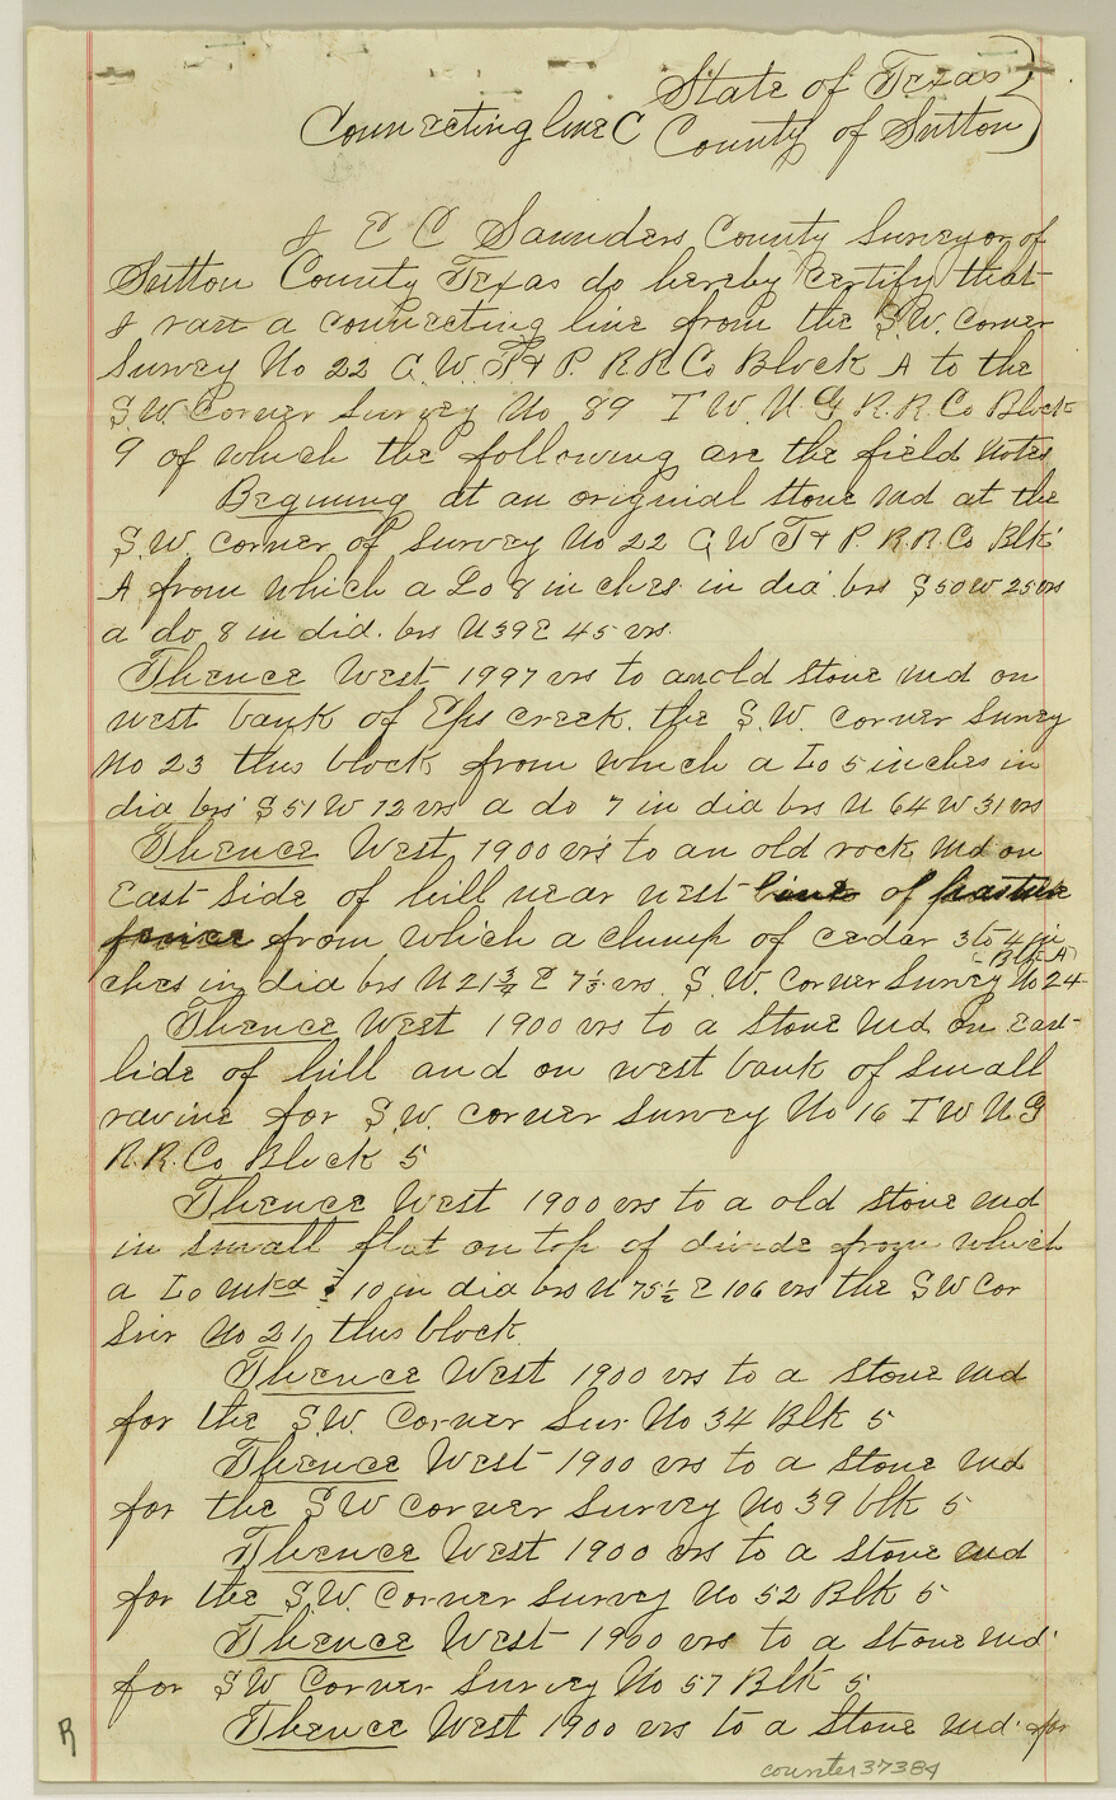 State of Texas )
Connecting line C County of Sutton )
I E C Saunders County Surveyor of
Sutton County Texas do hereby certify that
I ran a connecting line from the S.W. Corner
Survey No 22 G. W. T. & P. R R Co Block A to the
S.W. Corner Survey No 89 T W. N. G R. R. Co Block
9 of which the following are the field notes
Begining at an original stone Md at the
S.W. corner of Survey No 22 G W T & P. R. R. Co Blk
A from which a Lo 8 inches in dia brs S 50 W 25 vrs
a do 8 in dia. brs N 39 E 45 vrs.
Thence West 1997 vrs to an old stone Md on
west bank of Eps creek. the S.W. Corner Survey
No 23 this block from which a Lo 5 inches in
dia brs S 51 W 12 vrs a do 7 in dia brs N 64 W 31 vrs
Thence West 1900 vrs to an old rock Md on
East side of hill near west line of pasture
fence from which a clump of cedar 3 to 4 in
Blk A
ches in dia brs N 21 3/4 E 7 1/5 vrs. S. W. Corner Survey No 24
Thence West 1900 vrs to a stone Md on East
side of hill and on west bank of small
ravine for S.W. Corner Survey No 16 T W N G
R. R. Co Block 5
Thence West 1900 vrs to a old stone Md
in small flat on top of divide from which
a Lo Mkd 10 in dia brs N 75 1/2 E 106 vrs the S W Cor
Sur No 21 this block
Thence West 1900 vrs to a stone Md
for the S.W. Corner Sur No 34 Blk 5
Thence West 1900 vrs to a stone Md
for the S W Corner Survey No 39 blk 5
Thence West 1900 vrs to a stone Md
for the S.W. Corner Survey No 52 Blk 5
Thence West 1900 vrs to a stone Md
for S W Corner Survey No 57 Blk 5
Thence West 1900 vrs to a stone Md. for
R
counter 37384